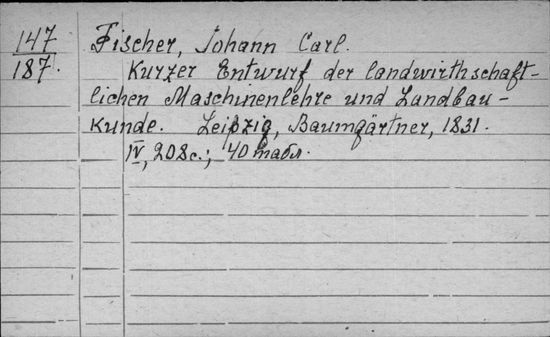 147
187.
Fischer, Johann Carl.
Kurzer Entwurf der landwirthschaft-
lichen Maschinenlehre und Landbau-
kunde. Leipzig, Baumgärtner, 1831.
IV, 208с.; 40 табл.